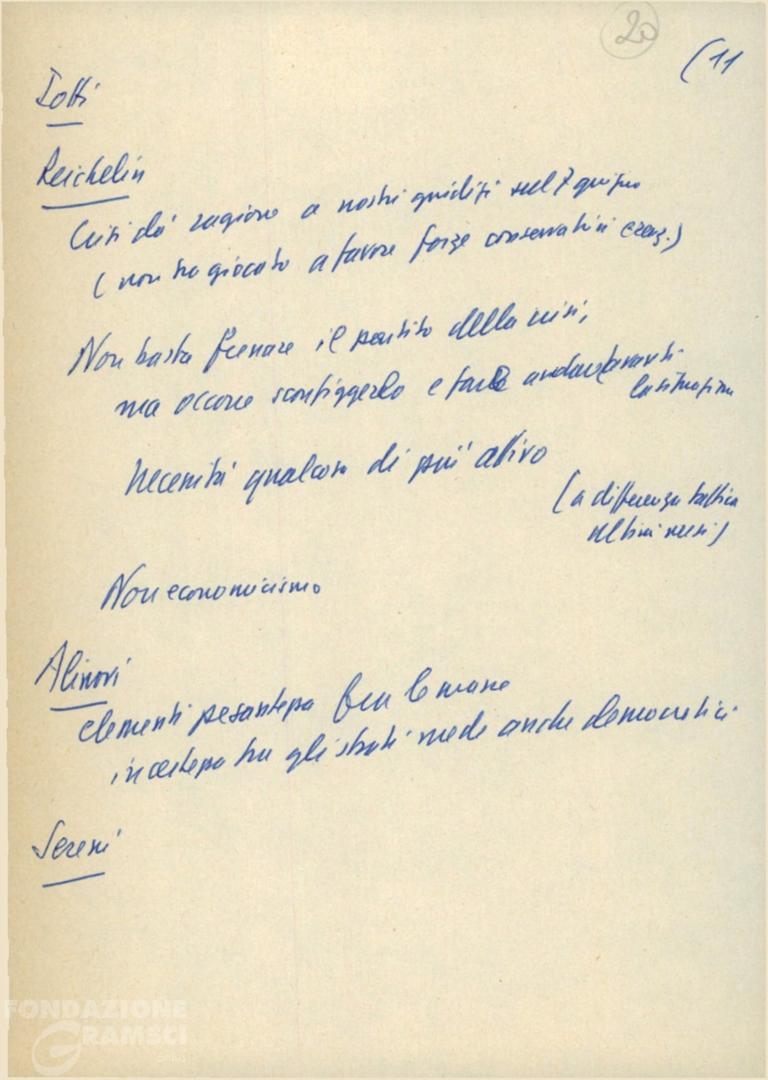 20
(11
Iotti
Reichlin
Crisi dà ragione a nostri giudizi sul 7 giugno
(non ha giocato a favore forze conservatrici e reaz.)
Non basta frenare il partito della crisi,
ma occorre sconfiggerlo e fare andare avanti
la situazione
Necessità qualcosa di più attivo
(a differenza tattica
ultimi mesi)
Non economicismo
Alinovi
elementi pesantezza fra le masse
incertezza tra gli strati medi anche democratici
Sereni
FONDAZIONE
GRAMSCI